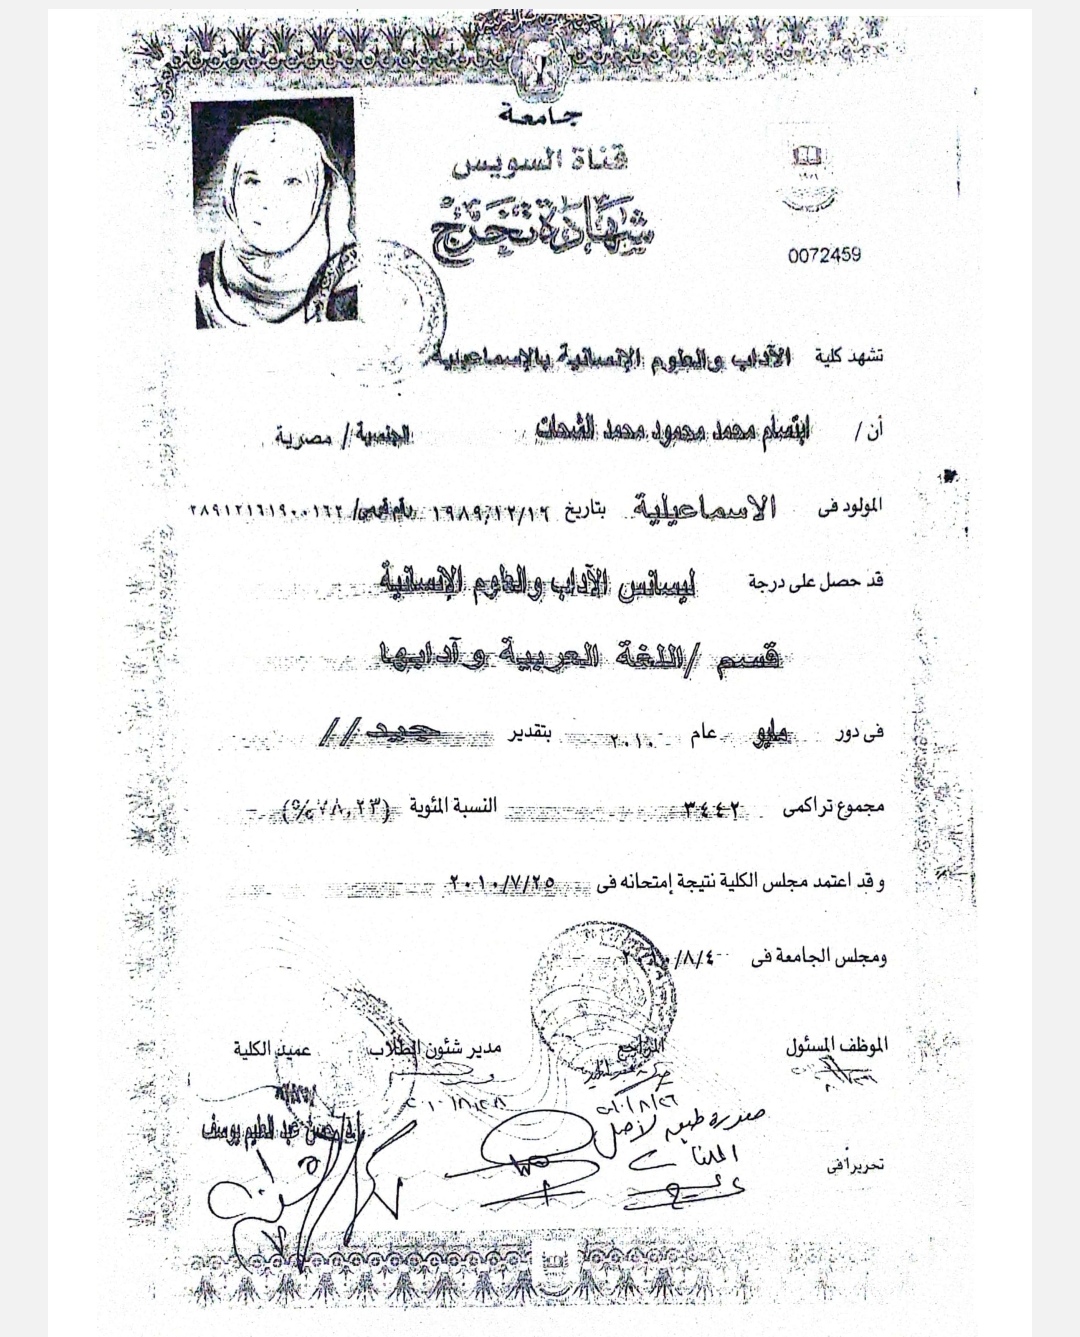 جامعة
قناة السويس
شهادة تخرج
0072459
تشهد كلية الآداب والعلوم الإنسانية بالإسماعيلية
أن / ابتسام محمد محمود محمد الشحات الجنسية / مصرية
المولود فى الاسماعيلية بتاريخ ١٩٨٩/١٢/١٦ رقم قومى/ ٢٨٩١٢١٦١٩٠٠١٦٢
قد حصل على درجة ليسانس الآداب والعلوم الإنسانية
قسم /اللغة العربية وآدابها
فى دور مايو عام ٢٠١٠ بتقدير جيد //
مجموع تراكمى ٣٤٤٢ النسبة المئوية (٧٨,٢٣%)
وقد اعتمد مجلس الكلية نتيجة إمتحانه فى ٢٠١٠/٧/٢٥
ومجلس الجامعة فى ٢٠١٠/٨/٤
الموظف المسئول المراجع مدير شئون الطلاب عميد الكلية
٢٠١٠/٨/٢٦
صورة طبق الأصل
تحريراً فى